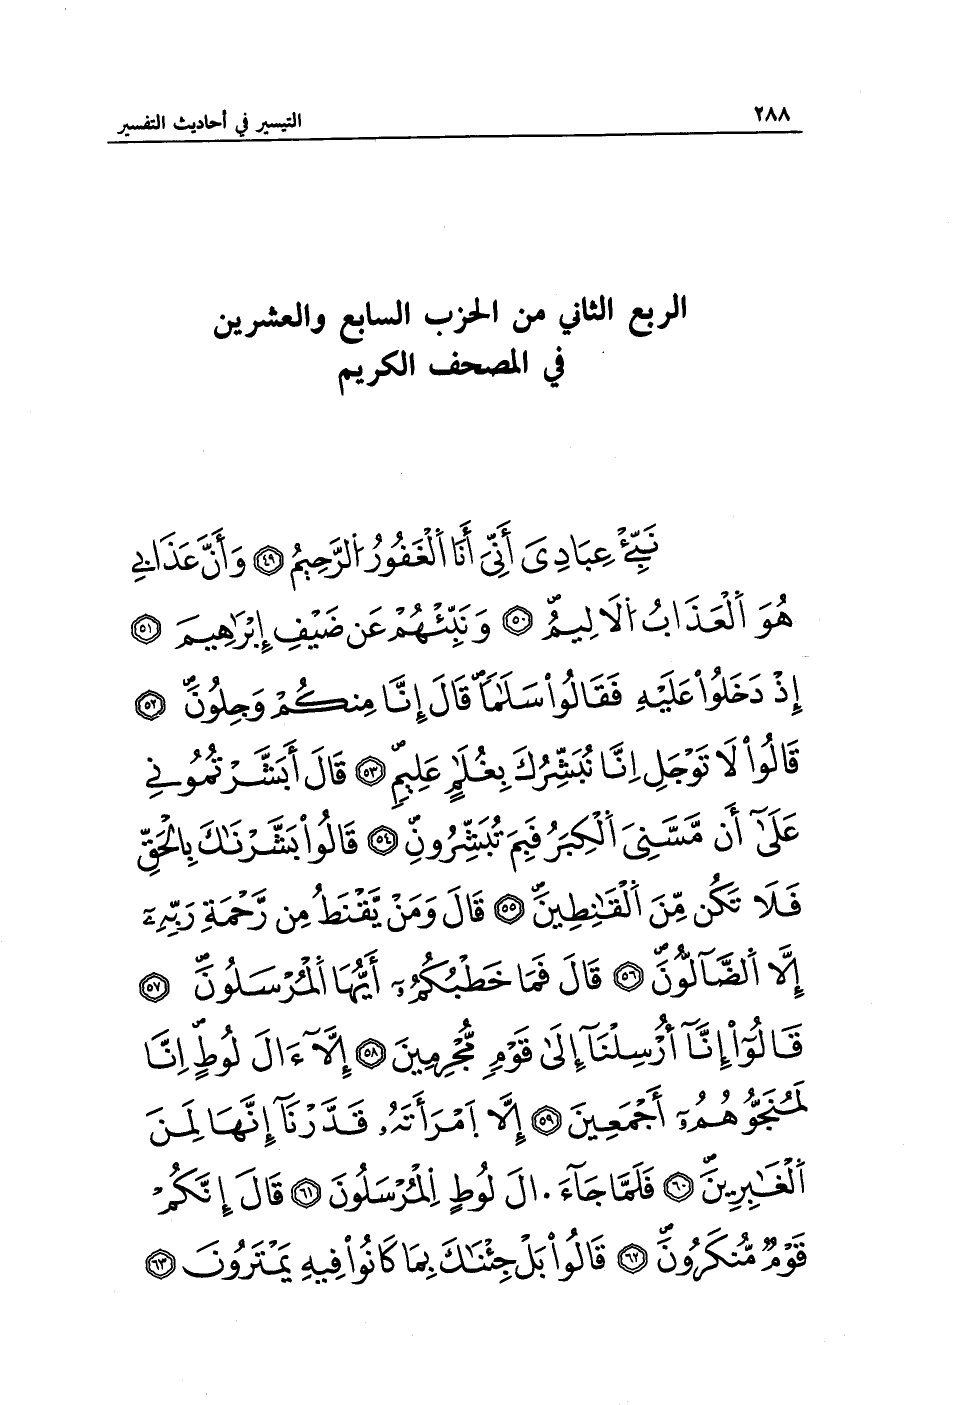 ٢٨٨
التيسير في أحاديث التفسير
الربع الثاني من الحزب السابع والعشرين
في المصحف الكريم
نَبِّئْ عِبَادِىَ أَنِّىَ أَنَا اَ۬لْغَفُورُ اُ۬لرَّحِيمُ ٤٩ وَأَنَّ عَذَابِى
هُوَ اَ۬لْعَذَابُ اُ۬لَالِيمُ ٥٠ وَنَبِّئْهُمْ عَن ضَيْفِ إِبْرَٰهِيمَ ٥١
إِذْ دَخَلُواْ عَلَيْهِ فَقَالُواْ سَلَٰماً قَالَ إِنَّا مِنكُمْ وَجِلُونَ ٥٢
قَالُواْ لَا تَوْجَلِ اِنَّا نُبَشِّرُكَ بِغُلَٰمٍ عَلِيمٍ ٥٣ قَالَ أَبَشَّرْتُمُونِى
عَلَىٰٓ أَن مَّسَّنِىَ اَ۬لْكِبَرُ فَبِمَ تُبَشِّرُونِ ٥٤ قَالُواْ بَشَّرْنَٰكَ بِالْحَقِّ
فَلَا تَكُن مِّنَ اَ۬لْقَٰنِطِينَ ٥٥ قَالَ وَمَنْ يَّقْنَطُ مِن رَّحْمَةِ رَبِّهِۦٓ
إِلَّا اَ۬لضَّآلُّونَ ٥٦ قَالَ فَمَا خَطْبُكُمُۥٓ أَيُّهَا اَ۬لْمُرْسَلُونَ ٥٧
قَالُوٓاْ إِنَّآ أُرْسِلْنَآ إِلَىٰ قَوْمٍ مُّجْرِمِينَ ٥٨ إِلَّآ ءَالَ لُوطٍ اِنَّا
لَمُنَجُّوهُمُۥٓ أَجْمَعِينَ ٥٩ إِلَّا اَ۪مْرَأَتَهُۥ قَدَّرْنَآ إِنَّهَا لَمِنَ
اَ۬لْغَٰبِرِينَ ٦٠ فَلَمَّا جَآءَ ا۬لَ لُوطٍ اِ۬لْمُرْسَلُونَ ٦١ قَالَ إِنَّكُمْ
قَوْمٌ مُّنكَرُونَ ٦٢ قَالُواْ بَلْ جِئْنَٰكَ بِمَا كَانُواْ فِيهِ يَمْتَرُونَ ٦٣